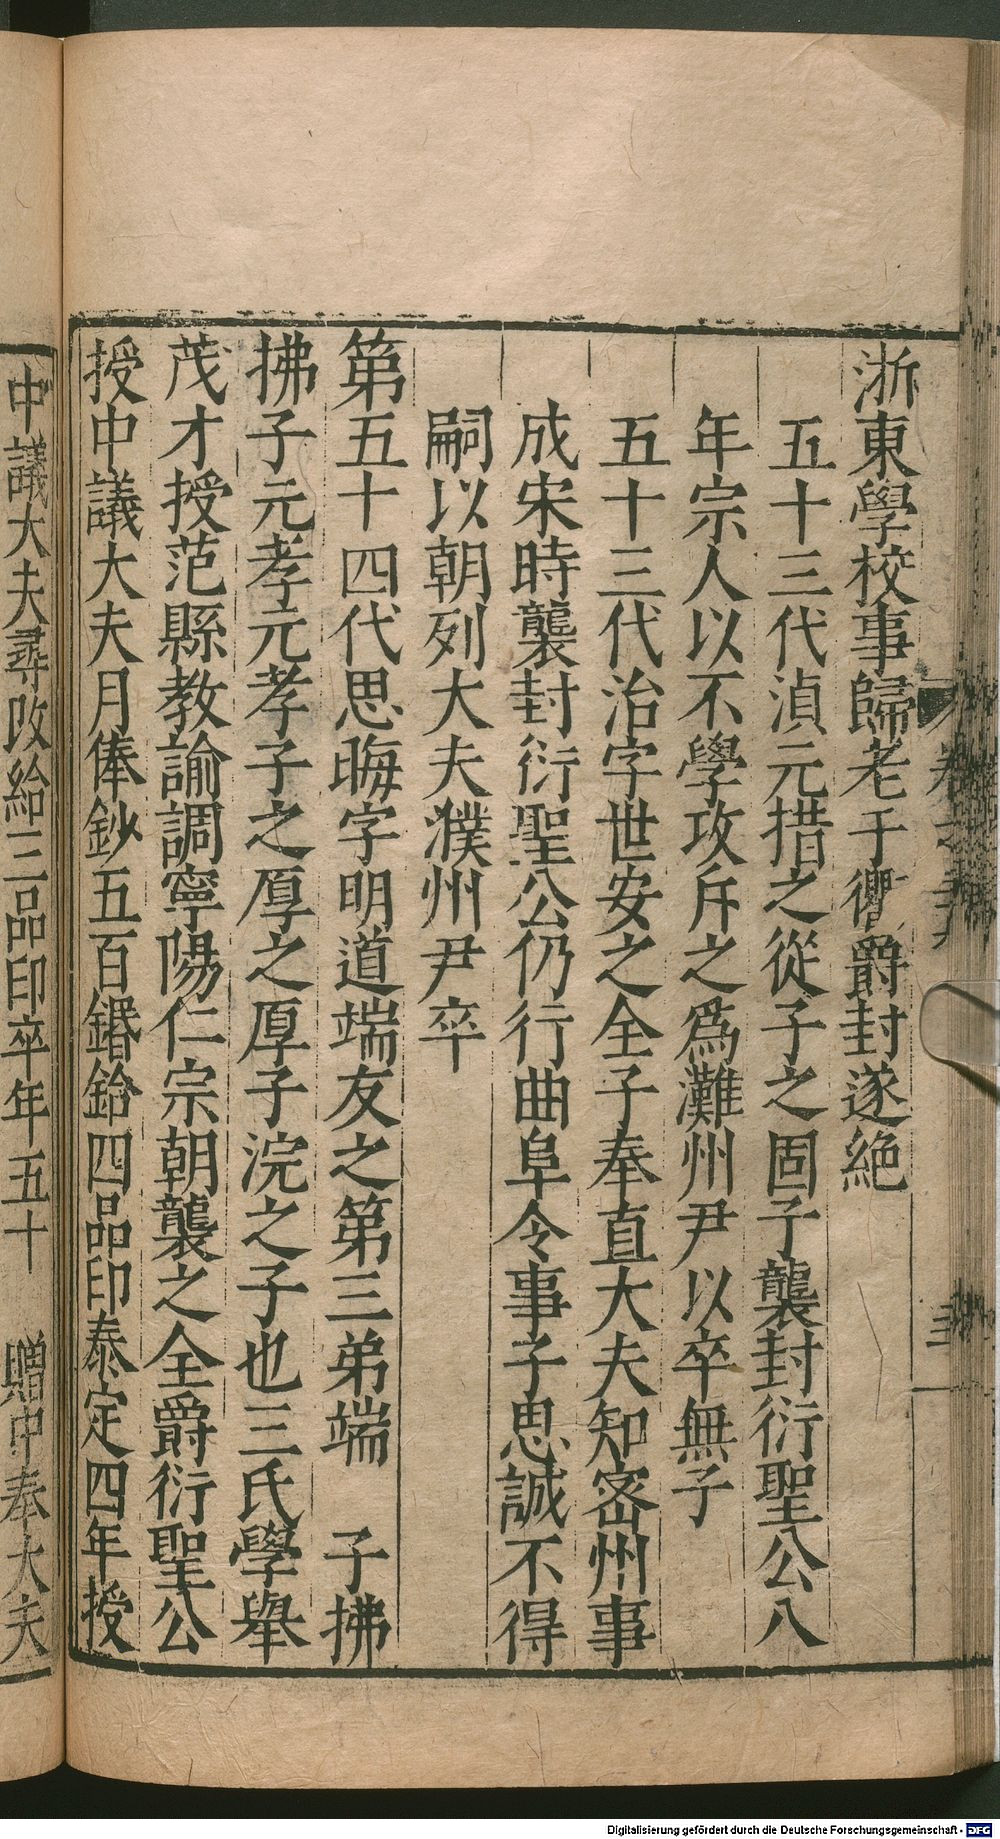 浙東學校事歸老于衢爵封遂絶
五十三代湞元措之從子之固子襲封衍聖公八
年宗人以不學攻斥之爲濰州尹以卒無子
五十三代治字世安之全子奉直大夫知密州事
成宋時襲封衍聖公仍行曲阜令事子思誠不得
嗣以朝列大夫濮州尹卒
第五十四代思晦字明道端友之第三弟端 子拂
拂子元孝元孝子之厚之厚子浣之子也三氏學舉
茂才授范縣教諭調寧陽仁宗朝襲之全爵衍聖公
授中議大夫月俸鈔五百鏹鈴四品印泰定四年授
中議大夫尋改給三品印卒年五十 贈中奉大夫
Digitalisierung gefördert durch die Deutsche Forschungsgemeinschaft - DFG